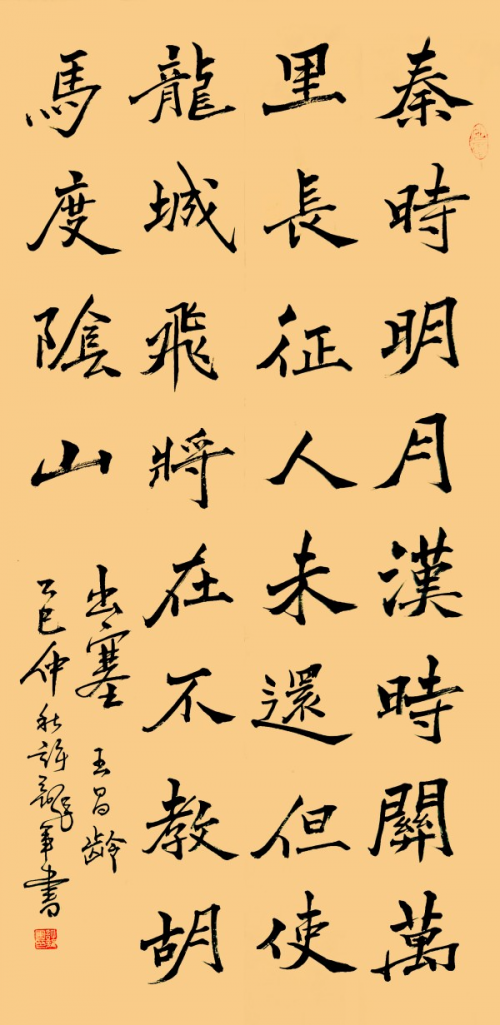 秦時明月漢時關萬
里長征人未還但使
龍城飛將在不教胡
馬度陰山
出塞 王昌齡
乙巳仲秋許軍書